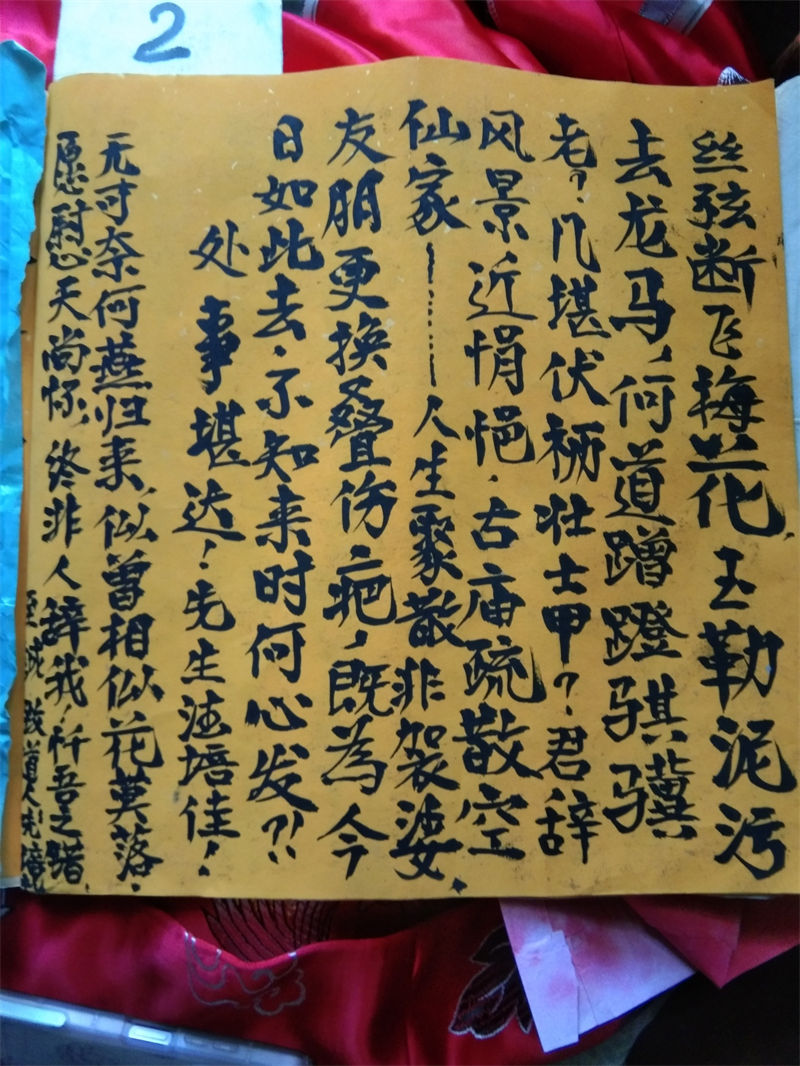 2
丝弦断飞梅兰花,玉勒泥污
去龙马,何道蹭蹬骐骥
老?几堪伏枥壮士甲?君辞
风景近悁悒.古庙疏散空
仙家——……——人生聚散非袈婆.
友朋更换叠伤疤,既為今
日如此去.不知来时何心发?!
处事堪达!先生法培佳!
无可奈何燕归来,似曾相似花莫落.
愿慰心天尚怀.终非人辞我!忏吾之错.
至诚